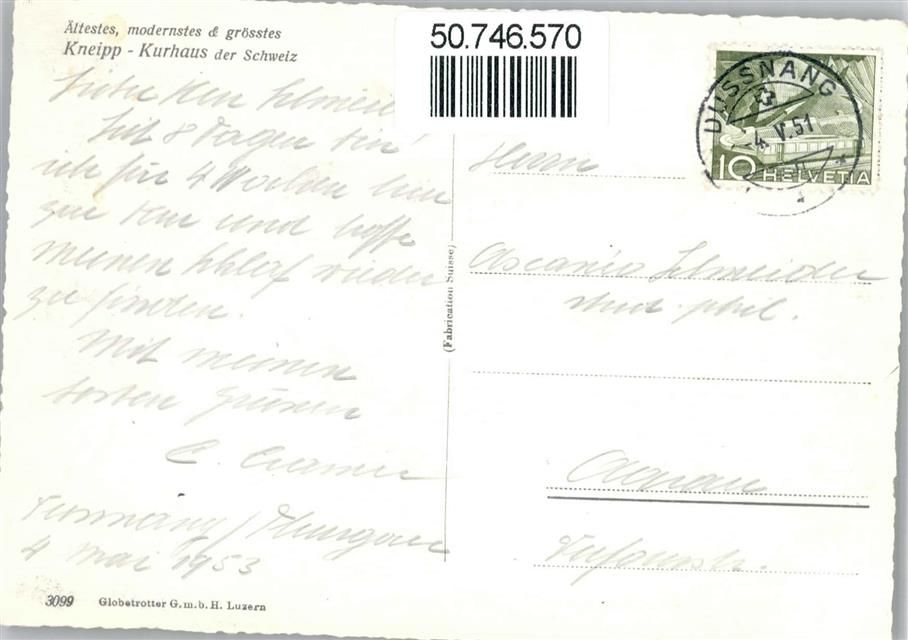 Ältestes, modernstes & grösstes
Kneipp - Kurhaus der Schweiz
50.746.570
DUSSNANG
4. V. 51
10 HELVETIA
Seit 8 Tagen bin
ich für 4 Wochen hier
zur Kur und hoffe
meinen Schlaf wieder
zu finden.
Mit meinen
besten Grüssen
Herrn
Ascanio Schneider
stud. phil.
Aarau
4 Mai 1953
(Fabrication Suisse)
3099 Globetrotter G.m.b.H. Luzern